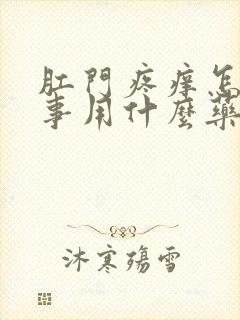 肛門疼痒怎
事用什麼藥
沐寒殤雪